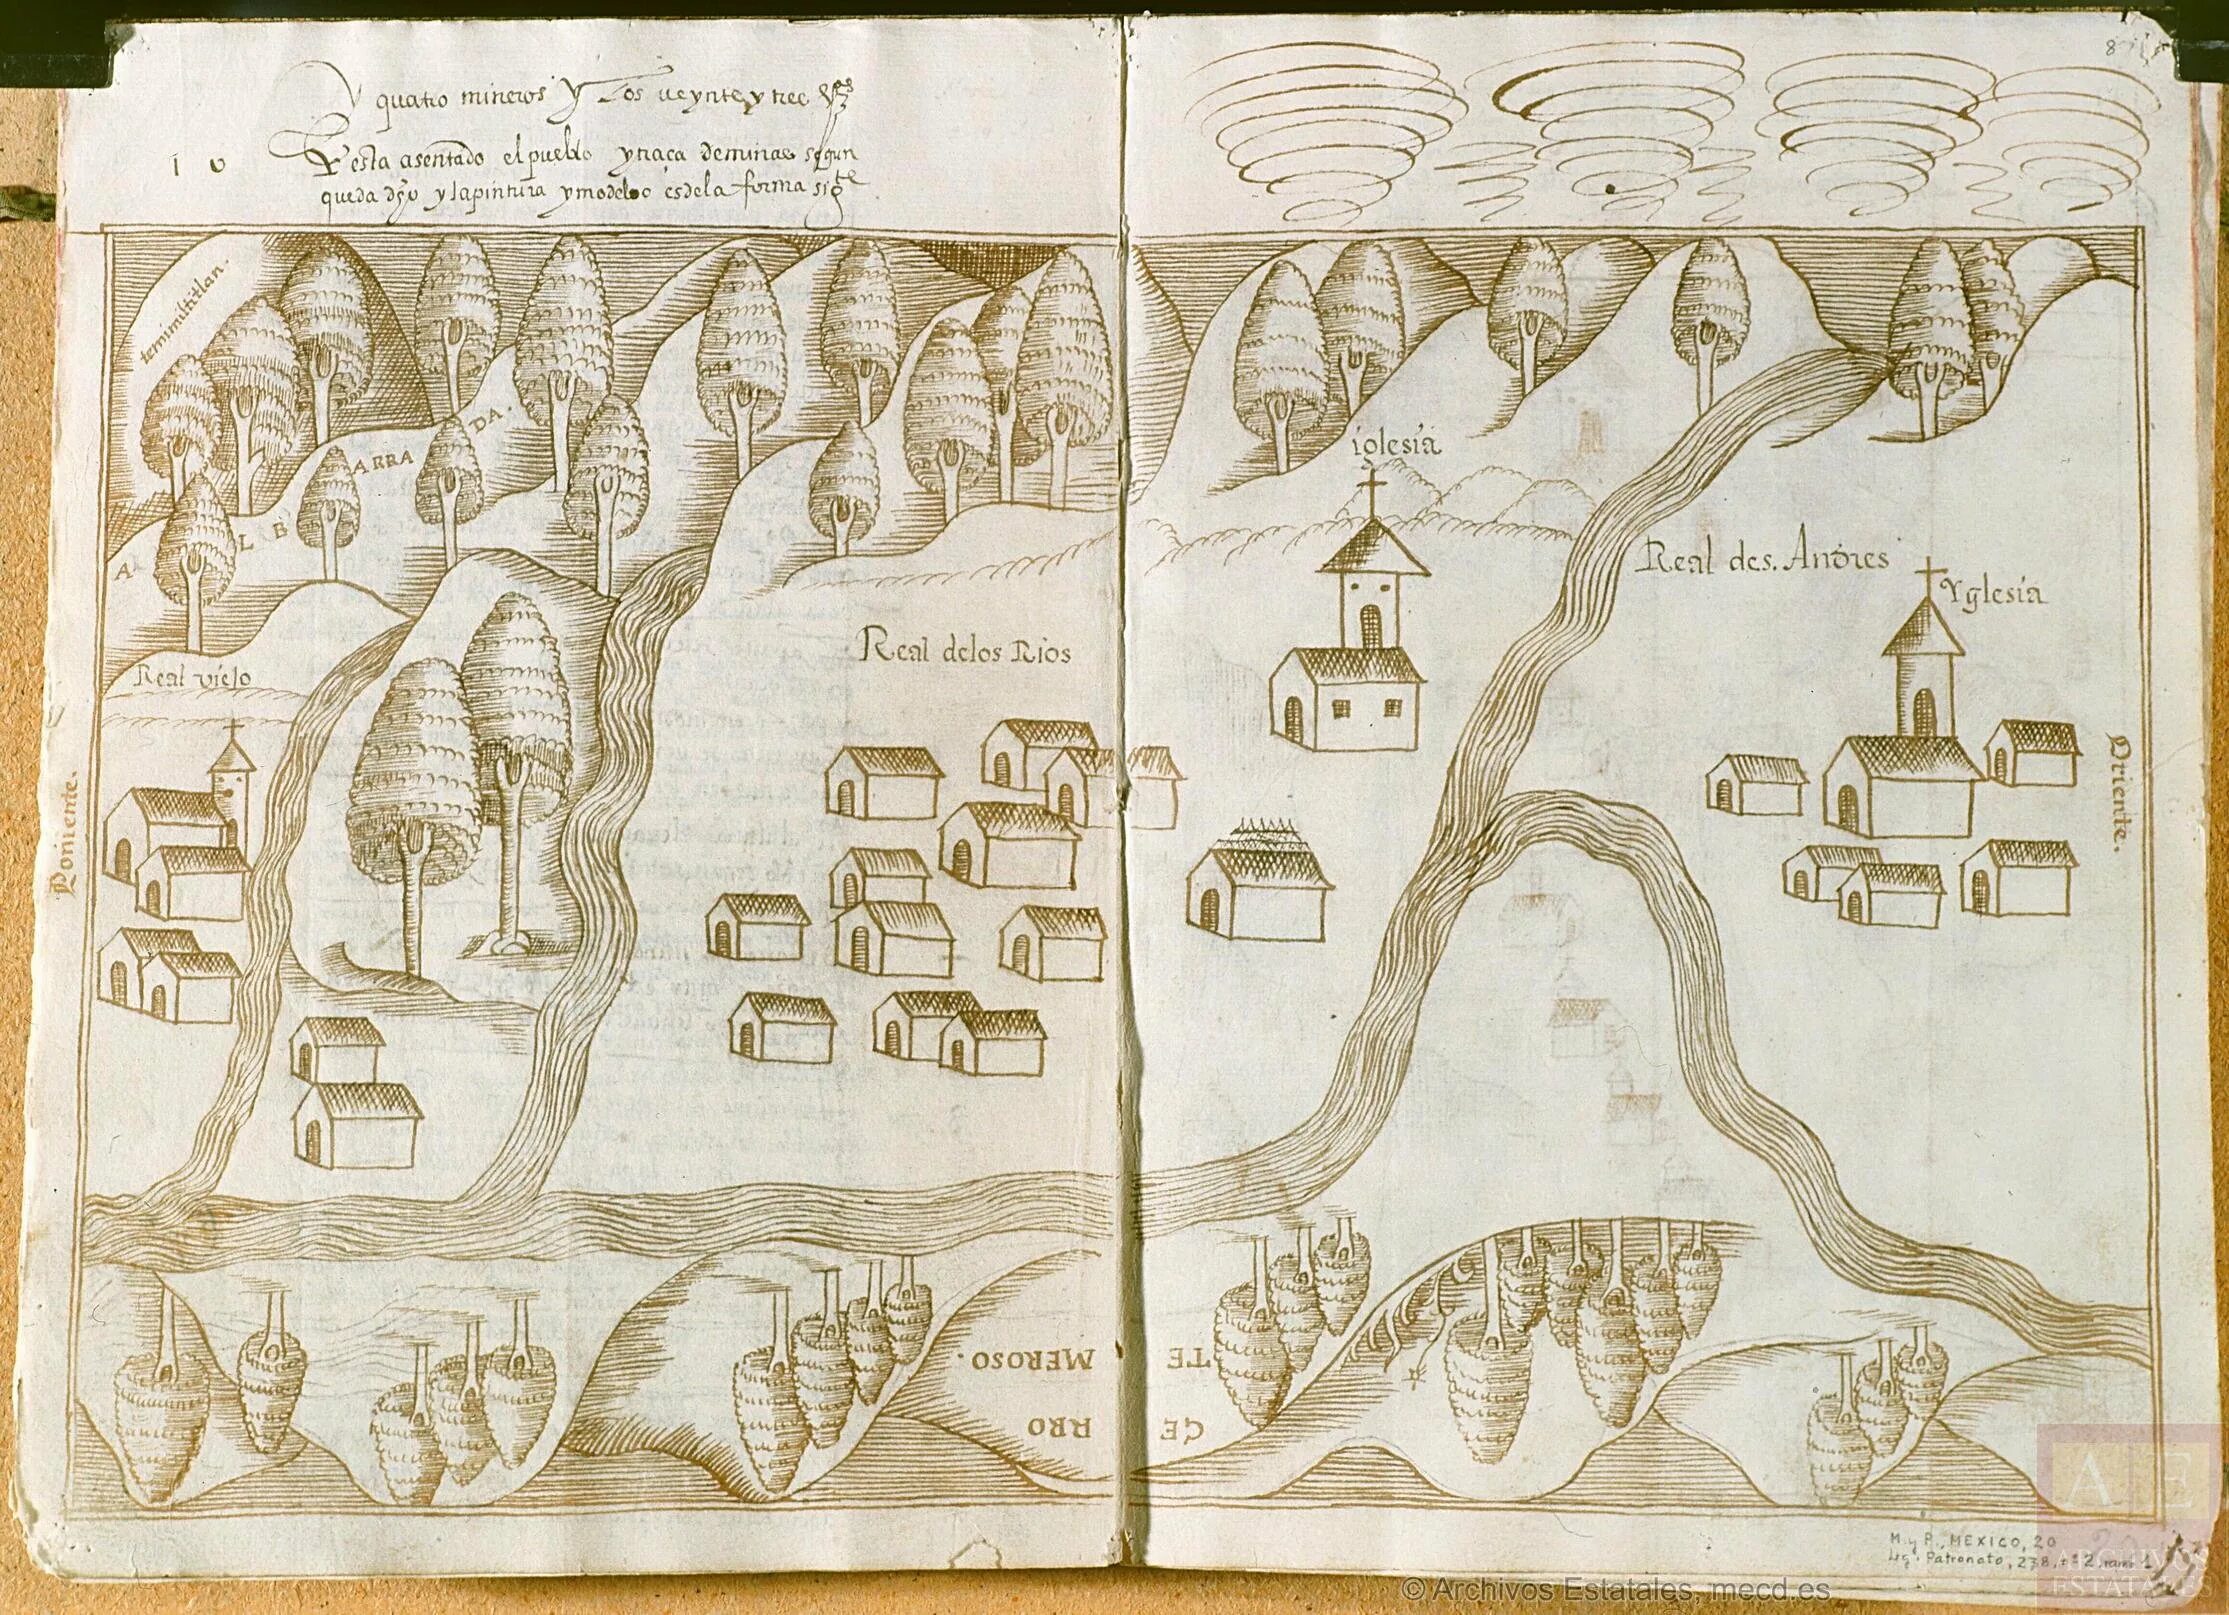 quatro mineros y los veynte y tres
10
esta asentado el pueblo y traca de minas segun
queda dho y la pintura y modeloo es de la forma sigte
temimiltitlan.
ALBARRADA.
iglesia
Real des. Andres
Yglesia
Real delos Rios
Real viejo
Poniente.
Oriente.
CERRO
TEMEROSO.
M. y P., MEXICO, 20
Leg. Patronato, 238, nº 2, ramo 1
AE
ARCHIVOS
ESTATALES
© Archivos Estatales, mecd.es